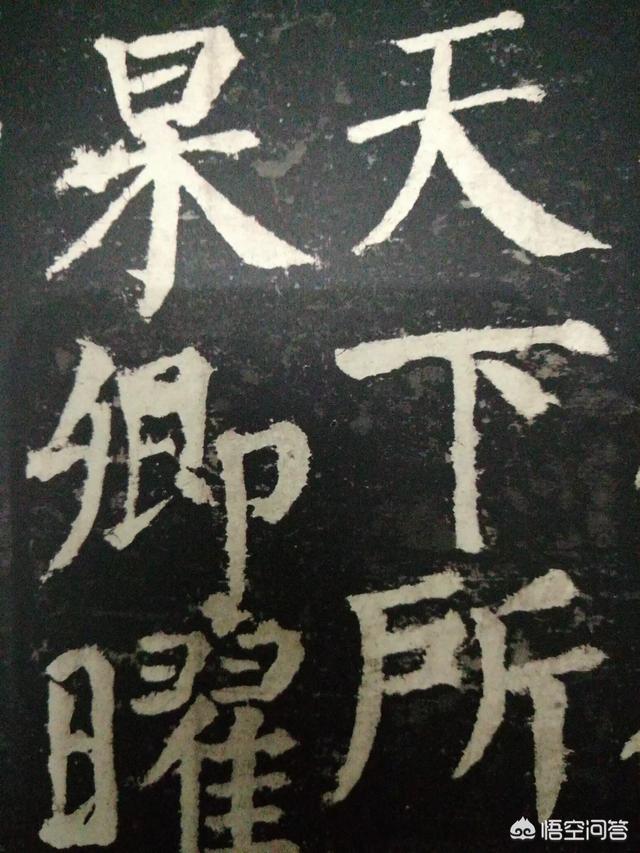 天下所
杲卿曜
悟空问答